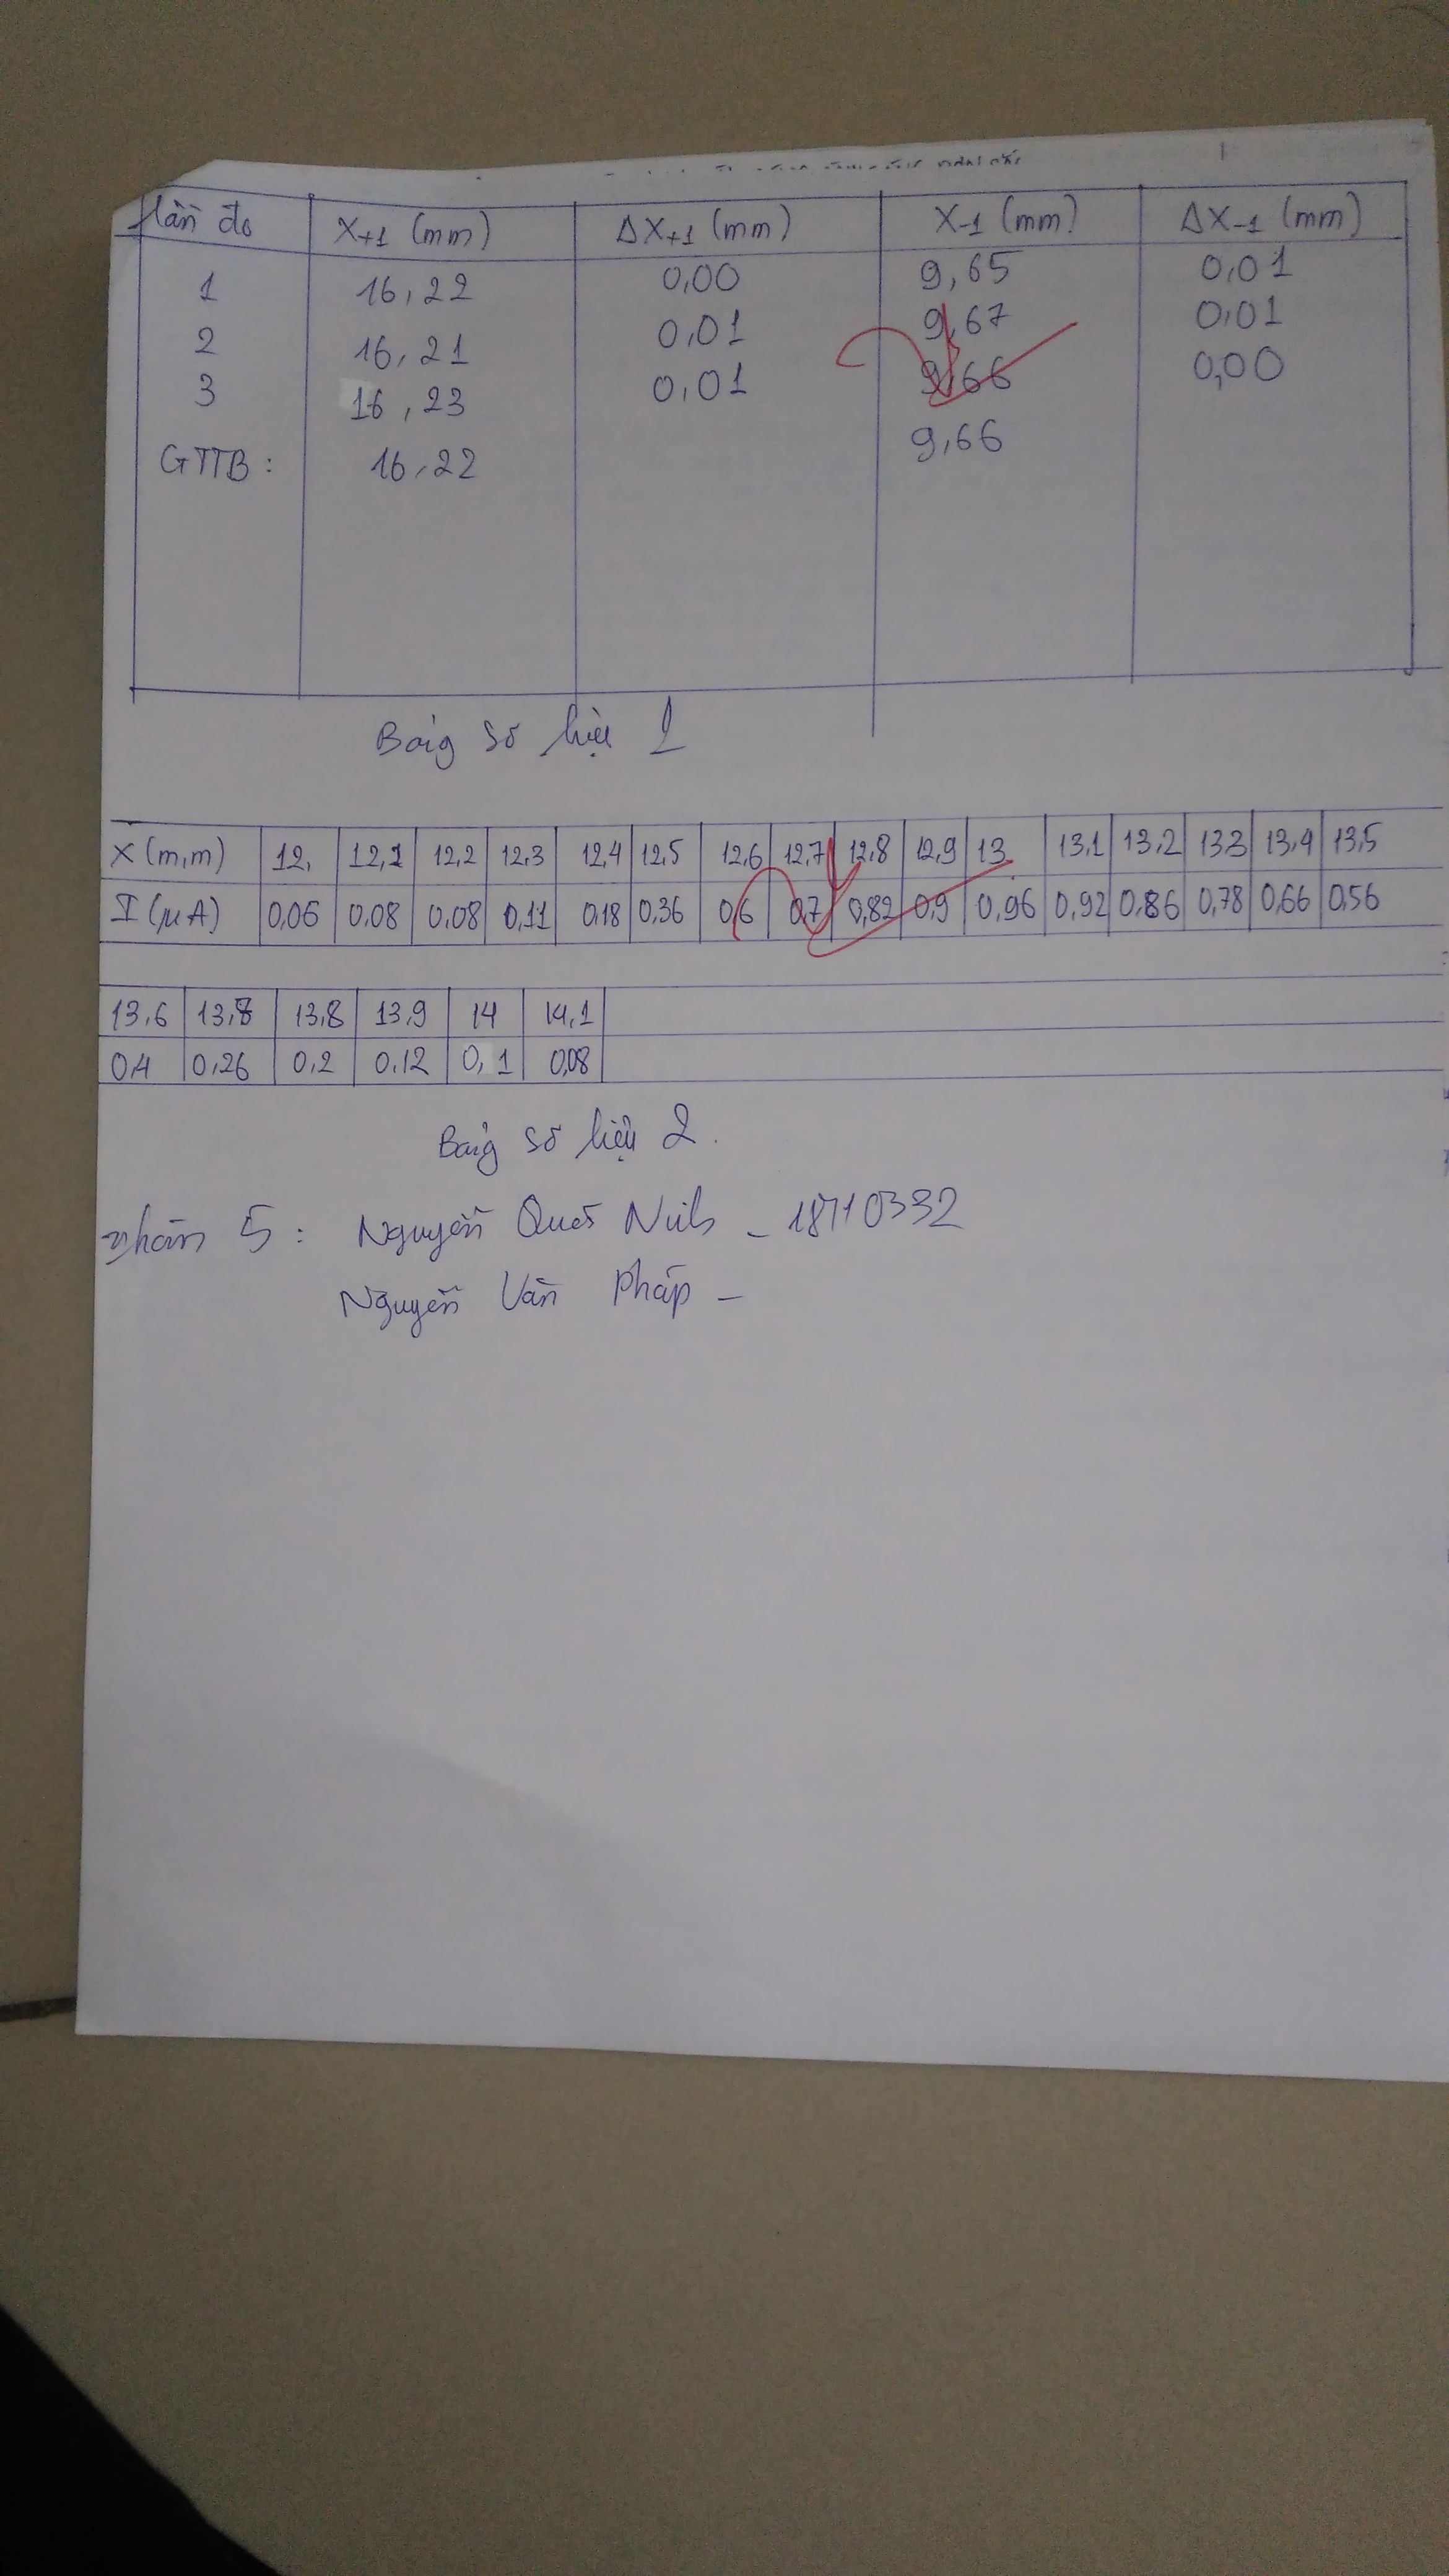 Lần đo X+1 (mm) ΔX+1 (mm) X-1 (mm) ΔX-1 (mm)
1 16,22 0,00 9,65 0,01
2 16,21 0,01 9,67 0,01
3 16,23 0,01 9,66 0,00
GTTB : 16,22 9,66
Bảng số liệu 1
X (mm) 12, 12,1 12,2 12,3 12,4 12,5 12,6 12,7 12,8 12,9 13 13,1 13,2 13,3 13,4 13,5
I (μA) 0,06 0,08 0,08 0,11 0,18 0,36 0,6 0,7 0,82 0,9 0,96 0,92 0,86 0,78 0,66 0,56
13,6 13,8 13,8 13,9 14 14,1
0,4 0,26 0,2 0,12 0,1 0,08
Bảng số liệu 2.
nhóm 5 : Nguyễn Quốc _ 18710332
Nguyễn Văn Pháp _